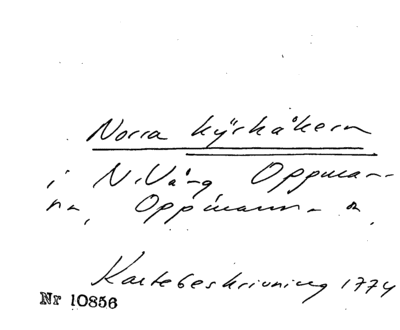 Norra kyrkåkern
i N. Vång Oppman-
na, Oppmanna
Kartebeskrivning 1774
Nr 10856